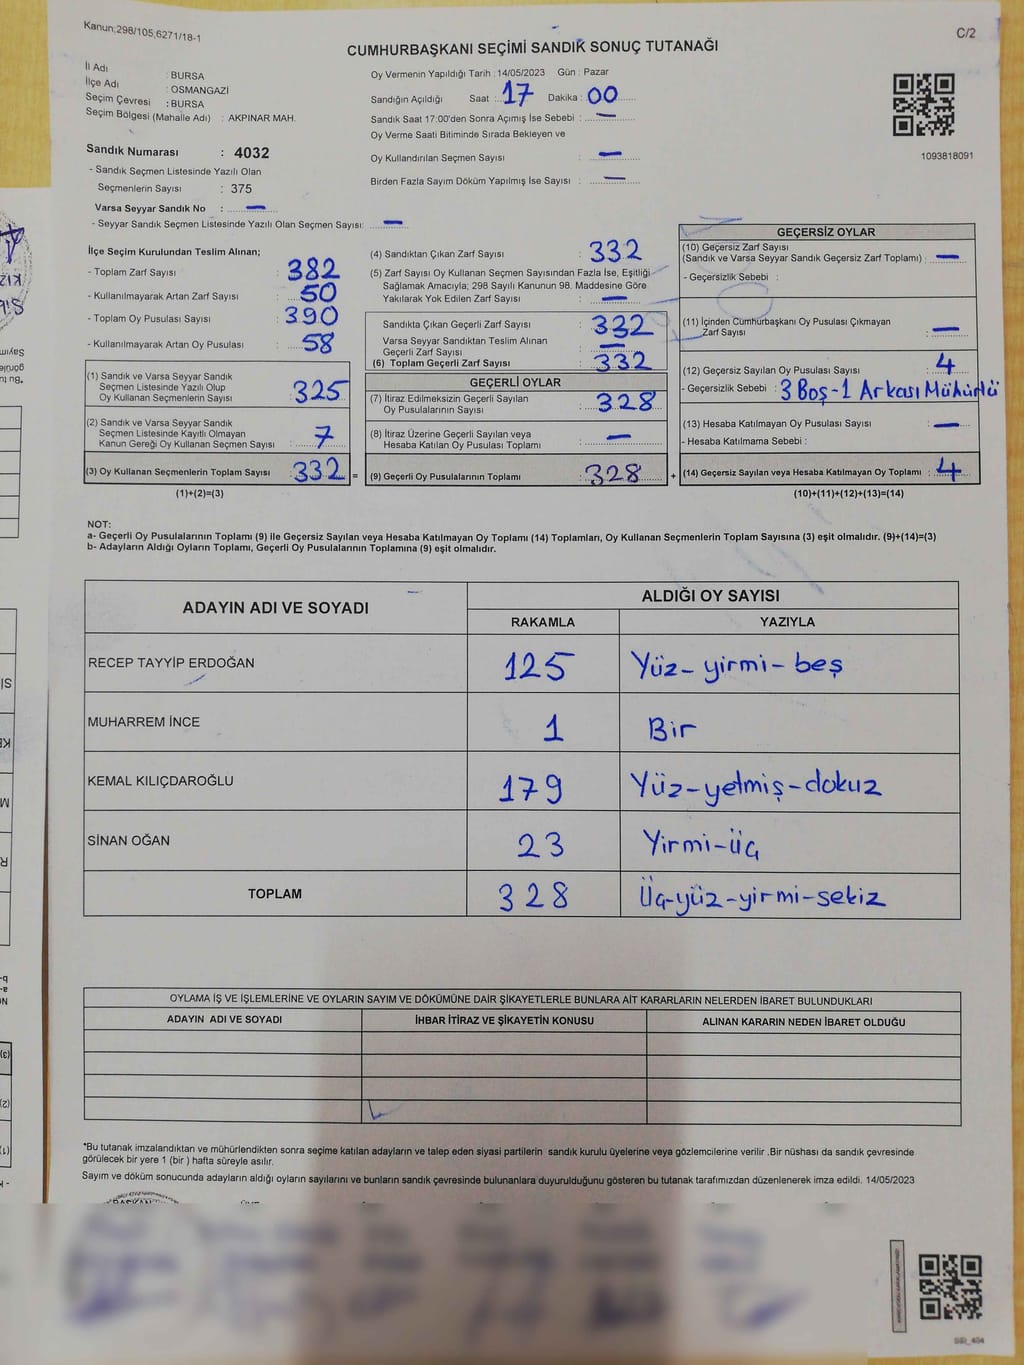 Kanun;298/105,6271/18-1
C/2
CUMHURBAŞKANI SEÇİMİ SANDIK SONUÇ TUTANAĞI
İl Adı : BURSA
İlçe Adı : OSMANGAZİ
Seçim Çevresi : BURSA
Seçim Bölgesi (Mahalle Adı) : AKPINAR MAH.
Oy Vermenin Yapıldığı Tarih : 14/05/2023 Gün : Pazar
Sandığın Açıldığı Saat : 17 Dakika : 00
Sandık Saat 17:00'den Sonra Açımış İse Sebebi : —
Oy Verme Saati Bitiminde Sırada Bekleyen ve
Oy Kullandırılan Seçmen Sayısı : —
Birden Fazla Sayım Döküm Yapılmış İse Sayısı : —
1093818091
Sandık Numarası : 4032
- Sandık Seçmen Listesinde Yazılı Olan
Seçmenlerin Sayısı : 375
Varsa Seyyar Sandık No : —
- Seyyar Sandık Seçmen Listesinde Yazılı Olan Seçmen Sayısı: —
İlçe Seçim Kurulundan Teslim Alınan;
- Toplam Zarf Sayısı : 382
- Kullanılmayarak Artan Zarf Sayısı : 50
- Toplam Oy Pusulası Sayısı : 390
- Kullanılmayarak Artan Oy Pusulası : 58
(1) Sandık ve Varsa Seyyar Sandık
Seçmen Listesinde Yazılı Olup
Oy Kullanan Seçmenlerin Sayısı : 325
(2) Sandık ve Varsa Seyyar Sandık
Seçmen Listesinde Kayıtlı Olmayan
Kanun Gereği Oy Kullanan Seçmen Sayısı : 7
(3) Oy Kullanan Seçmenlerin Toplam Sayısı : 332 =
(1)+(2)=(3)
(4) Sandıktan Çıkan Zarf Sayısı : 332
(5) Zarf Sayısı Oy Kullanan Seçmen Sayısından Fazla İse, Eşitliği
Sağlamak Amacıyla; 298 Sayılı Kanunun 98. Maddesine Göre
Yakılarak Yok Edilen Zarf Sayısı : —
Sandıkta Çıkan Geçerli Zarf Sayısı : 332
Varsa Seyyar Sandıktan Teslim Alınan
Geçerli Zarf Sayısı : —
(6) Toplam Geçerli Zarf Sayısı : 332
GEÇERLİ OYLAR
(7) İtiraz Edilmeksizin Geçerli Sayılan
Oy Pusulalarının Sayısı : 328
(8) İtiraz Üzerine Geçerli Sayılan veya
Hesaba Katılan Oy Pusulası Toplamı : —
(9) Geçerli Oy Pusulalarının Toplamı : 328 +
GEÇERSİZ OYLAR
(10) Geçersiz Zarf Sayısı
(Sandık ve Varsa Seyyar Sandık Geçersiz Zarf Toplamı) : —
- Geçersizlik Sebebi :
(11) İçinden Cumhurbaşkanı Oy Pusulası Çıkmayan
Zarf Sayısı : —
(12) Geçersiz Sayılan Oy Pusulası Sayısı : 4
- Geçersizlik Sebebi : 3 Boş-1 Arkası Mühürlü
(13) Hesaba Katılmayan Oy Pusulası Sayısı : —
- Hesaba Katılmama Sebebi :
(14) Geçersiz Sayılan veya Hesaba Katılmayan Oy Toplamı : 4
(10)+(11)+(12)+(13)=(14)
NOT:
a- Geçerli Oy Pusulalarının Toplamı (9) ile Geçersiz Sayılan veya Hesaba Katılmayan Oy Toplamı (14) Toplamları, Oy Kullanan Seçmenlerin Toplam Sayısına (3) eşit olmalıdır. (9)+(14)=(3)
b- Adayların Aldığı Oyların Toplamı, Geçerli Oy Pusulalarının Toplamına (9) eşit olmalıdır.
ADAYIN ADI VE SOYADI ALDIĞI OY SAYISI
RAKAMLA YAZIYLA
RECEP TAYYİP ERDOĞAN 125 Yüz-yirmi-beş
MUHARREM İNCE 1 Bir
KEMAL KILIÇDAROĞLU 179 Yüz-yetmiş-dokuz
SİNAN OĞAN 23 Yirmi-üç
TOPLAM 328 Üç-yüz-yirmi-sekiz
OYLAMA İŞ VE İŞLEMLERİNE VE OYLARIN SAYIM VE DÖKÜMÜNE DAİR ŞİKAYETLERLE BUNLARA AİT KARARLARIN NELERDEN İBARET BULUNDUKLARI
ADAYIN ADI VE SOYADI İHBAR İTİRAZ VE ŞİKAYETİN KONUSU ALINAN KARARIN NEDEN İBARET OLDUĞU
*Bu tutanak imzalandıktan ve mühürlendikten sonra seçime katılan adayların ve talep eden siyasi partilerin sandık kurulu üyelerine veya gözlemcilerine verilir .Bir nüshası da sandık çevresinde
görülecek bir yere 1 (bir ) hafta süreyle asılır.
Sayım ve döküm sonucunda adayların aldığı oyların sayılarını ve bunların sandık çevresinde bulunanlara duyurulduğunu gösteren bu tutanak tarafımızdan düzenlenerek imza edildi. 14/05/2023